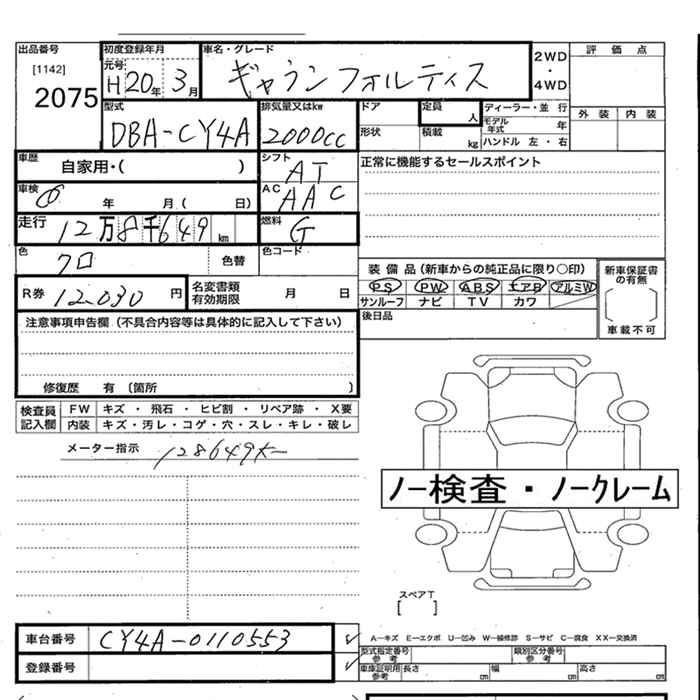 出品番号
[1142]
2075
初度登録年月
元号 H 20年 3月
車名・グレード
ギャランフォルティス
2WD
・
4WD
評価点
外装 内装
型式
DBA-CY4A
排気量又はkw
2000cc
ドア
形状
定員 人
積載 kg
ディーラー・並行
モデル年式 年
ハンドル 左・右
車歴
自家用・( )
シフト
AT
正常に機能するセールスポイント
車検
年 月( 日)
AC
AAC
走行
12万8千649km
燃料
G
色
クロ
色替
色コード
装備品(新車からの純正品に限り○印)
PS PW ABS エアB アルミW
サンルーフ ナビ TV カワ
新車保証書の有無
車載不可
R券 12.030円
名変書類有効期限 月 日
後日品
注意事項申告欄(不具合内容等は具体的に記入して下さい)
修復歴 有 〔箇所
検査員記入欄
FW キズ・飛石・ヒビ割・リペア跡・X要
内装 キズ・汚レ・コゲ・穴・スレ・キレ・破レ
メーター指示 128649km
ノー検査・ノークレーム
スペアT
[ ]
車台番号 CY4A-0110553
登録番号
A―キズ E―エクボ U―凹み W―補修跡 S―サビ C―腐食 XX―交換済
型式指定番号参考
類別区分番号参考
車庫証明用参考 長さ cm 幅 cm 高さ cm